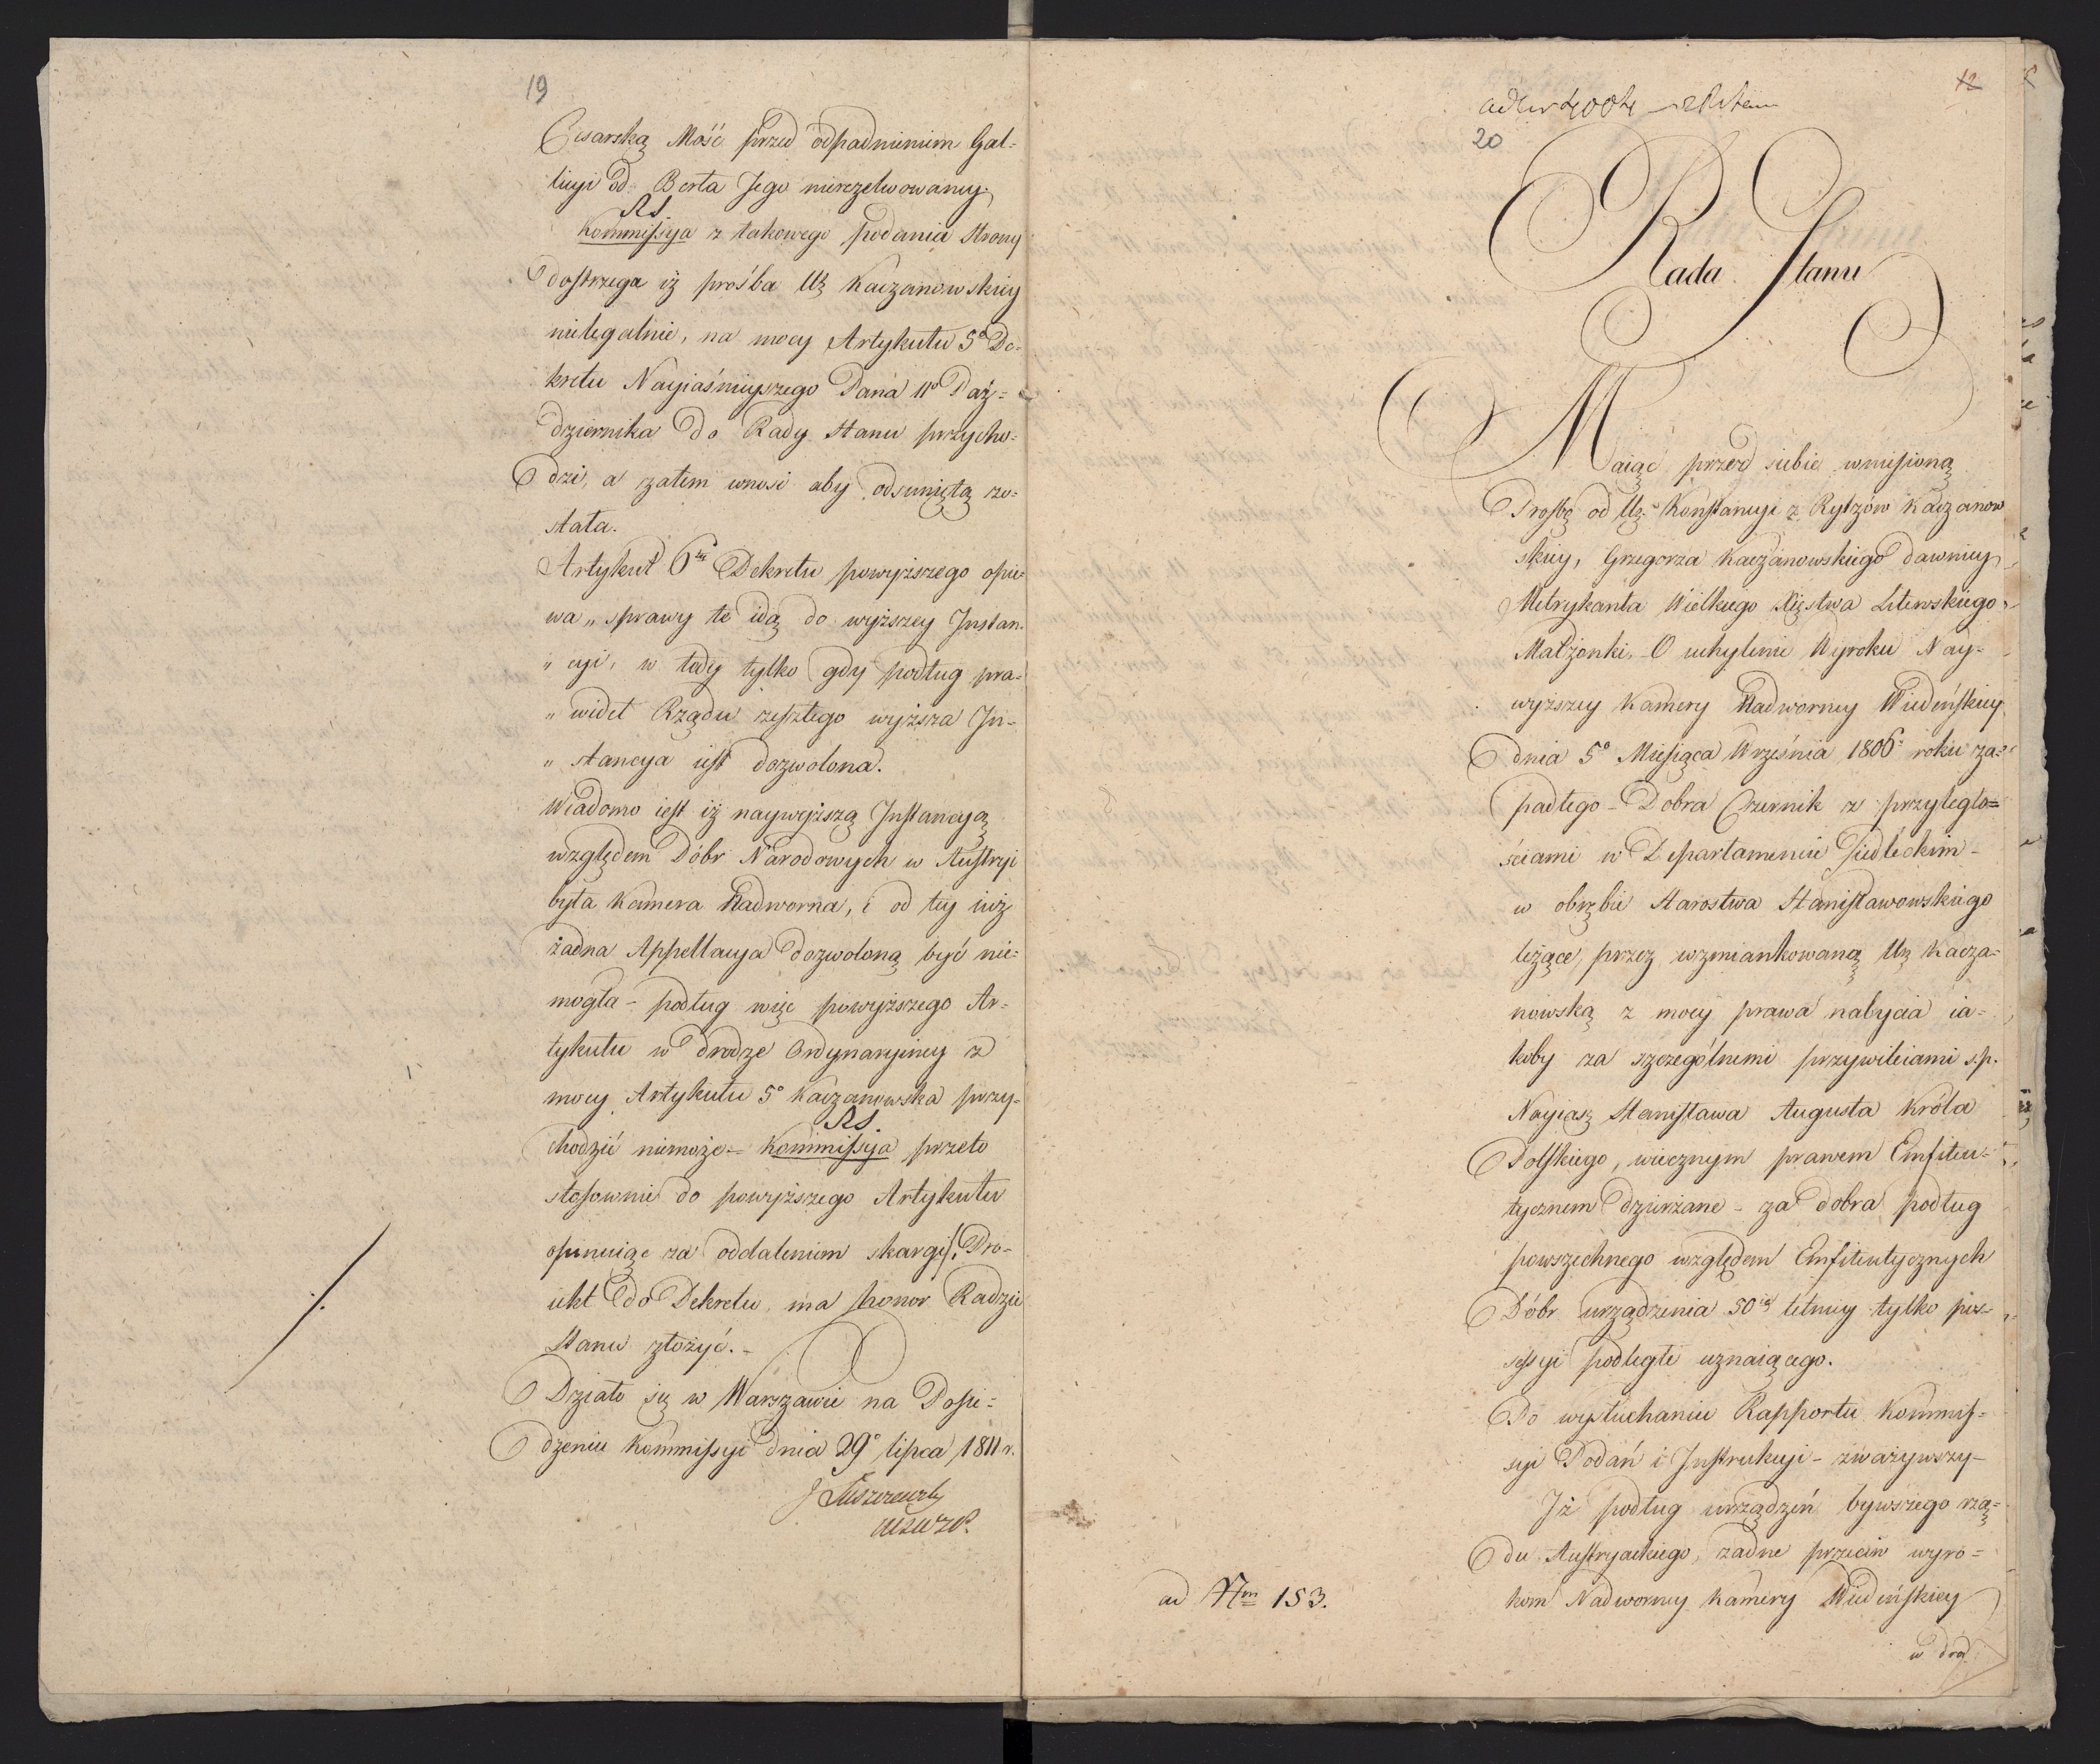 19
Cesarską Mość przed odpadnieniem Gal=
licyi od Berła Jego nierezelwowaney.
RS
Kommissya z takowego podania Strony
dostrzega iż prośba Ur Kaczanowskiey
nielegalnie, na mocy Artykułu 5º De-
kretu Nayiaśnieyszego Pana 11º Paź=
dziernika do Rady Stanu przycho=
dzi, a zatem wnosi aby odsuniętą zo=
stała.
Artykuł 6ty Dekretu powyższego opie=
wa „ sprawy te idą do wyższey Instan=
„ cyi, w tedy tylko gdy podług pra=
„ wideł Rządu zeszłego wyższa In=
„ stancya iest dozwolona.
Wiadomo iest iż naywyższą Instancyą
względem Dóbr Narodowych w Austryi
była Kamera Nadworna, i od tey iuż
żadna Appellacya dozwoloną być nie=
mogła – podług więc powyższego Ar=
tykułu w drodze Ordynaryiney z
mocy Artykułu 5º Kaczanowska przy-
RS.
chodzić niemoże – Kommissya przeto
stosownie do powyższego Artykułu
opiniuiąc za oddaleniem skargi, Pro-
iekt do Dekretu, ma honor Radzie
Stanu złożyć. –
Działo się w Warszawie na Posie=
dzeniu Kommissyi dnia 29º lipca 1811 r.
12
20
Rada Stanu
Maiąc przed siebie wniesioną
Prośbę od Ur Konstancyi z Rylzów Kaczanow
skiey, Grzegorza Kaczanowskiego dawniey
Metrykanta Wielkiego Xięstwa Litewskiego
Małżonki, O uchylenie Wyroku Nay=
wyższey Kamery Nadworney Wiedeńskiey
dnia 5º Miesiąca Września 1806º roku za=
padłego – Dobra Czernik z przyległo=
ściami w Departamencie Siedleckim –
w obrębie Starostwa Stanisławowskiego
leżące, przez wzmiankowaną Ur Kacza=
nowską z mocy prawa nabycia ia=
koby za szczególnemi przywileiami s.p.
Nayiasz Stanisława Augusta Króla
Polskiego, wiecznym prawem Emfiteu=
tycznem dzierżane – za dobra podług
powszechnego względem Emfiteutycznych
Dóbr urządzenia 50cio letniey tylko pos=
sessyi podległe uznaiącego.
Po wysłuchaniu Rapportu Kommis=
syi Podań i Instrukcyi – zważywszy –
Iż podług urządzeń bywszego rzą=
du Austryackiego, żadne przeciw wyro=
kom Nadworney Kamery Wiedeńskiey
w dro
ad Nrm 153.